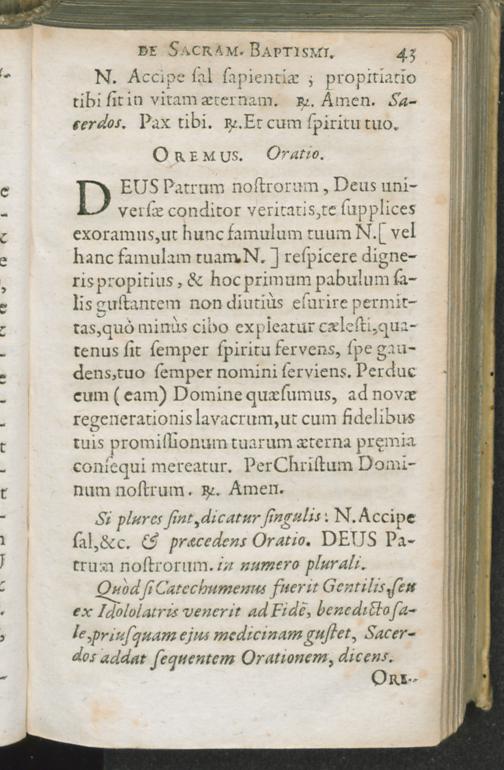 DE SACRAM. BAPTISMI. 43
N. Accipe ſal ſapientiæ ; propitiatio
tibi ſit in vitam æternam. ℟. Amen. Sa-
cerdos. Pax tibi. ℟. Et cum ſpiritu tuo.
OREMUS. Oratio.
DEUS Patrum noſtrorum, Deus uni-
verſæ conditor veritatis, te ſupplices
exoramus, ut hunc famulum tuum N. [ vel
hanc famulam tuam N. ] reſpicere digne-
ris propitius, & hoc primum pabulum ſa-
lis guſtantem non diutiùs eſurire permit-
tas, quò minùs cibo expleatur cæleſti, qua-
tenus ſit ſemper ſpiritu fervens, ſpe gau-
dens, tuo ſemper nomini ſerviens. Perduc
eum ( eam ) Domine quæſumus, ad novæ
regenerationis lavacrum, ut cum fidelibus
tuis promiſſionum tuarum æterna pręmia
conſequi mereatur. Per Chriſtum Domi-
num noſtrum. ℟. Amen.
Si plures ſint, dicatur ſingulis : N. Accipe
ſal, &c. & præcedens Oratio. DEUS Pa-
trum noſtrorum. in numero plurali.
Quòd ſi Catechumenus fuerit Gentilis, ſeu
ex Idololatris venerit ad Fidẽ, benedicto ſa-
le, priuſquam ejus medicinam guſtet, Sacer-
dos addat ſequentem Orationem, dicens.
ORE-